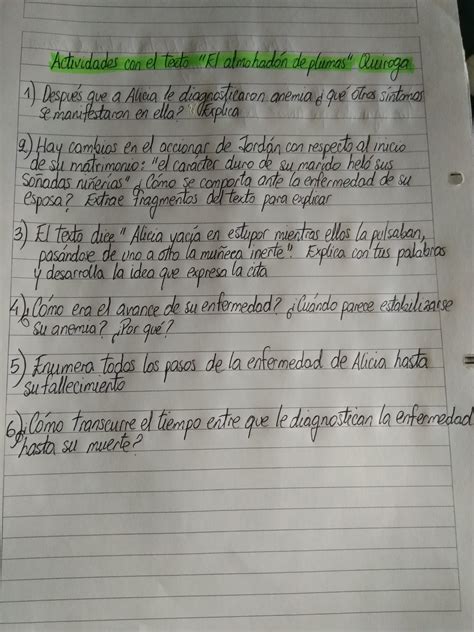 Actividades con el texto "El almohadón de plumas" Quiroga
1) Después que a Alicia le diagnosticaron anemia ¿qué otros síntomas
se manifestaron en ella? Explica
2) Hay cambios en el accionar de Jordán con respecto al inicio
de su matrimonio: "el carácter duro de su marido heló sus
soñadas niñerías" ¿Cómo se comporta ante la enfermedad de su
esposa? Extrae fragmentos del texto para explicar
3) El texto dice "Alicia yacía en estupor mientras ellos la pulsaban,
pasándose de uno a otro la muñeca inerte". Explica con tus palabras
y desarrolla la idea que expresa la cita
4) ¿Cómo era el avance de su enfermedad? ¿Cuándo parece estabilizarse
su anemia? ¿Por qué?
5) Enumera todos los pasos de la enfermedad de Alicia hasta
su fallecimiento
6) ¿Cómo transcurre el tiempo entre que le diagnostican la enfermedad
hasta su muerte?